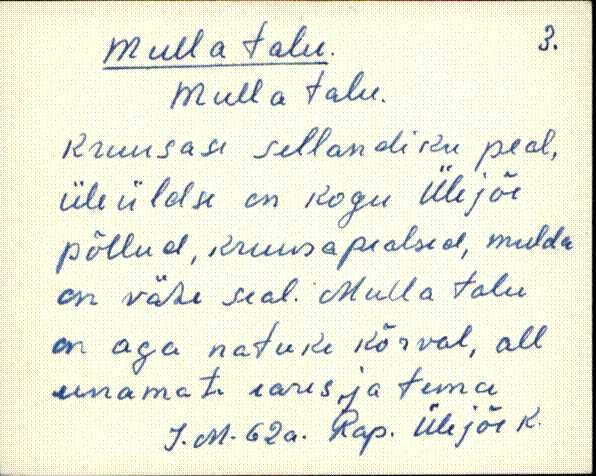 Mulla talu. 3.
Mulla talu.
Kruusase sellandiku peal,
üleüldse on kogu Ülejõe
põllud, kruusapealsed, mulda
on vähe seal. Mulla talu
on aga natuke kõrval, all
enamate ja tema
J. M. 62a. Rap. Ülejõe k.